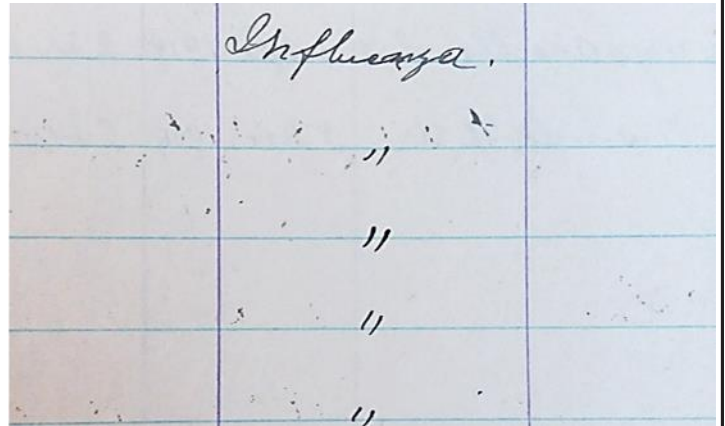 Influenza.
"
"
"
"